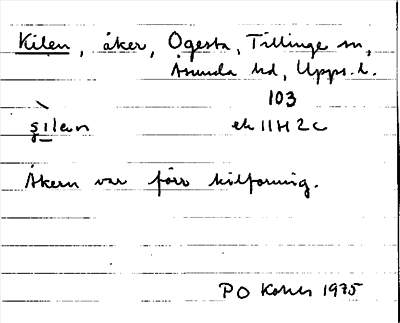 Kilen, åker, Ogesta, Tillinge sn,
Åsunda hd, Upps. l.
103
s̠ìlen ek 11H 2c
Åkern var förr kilformig.
PO 1975